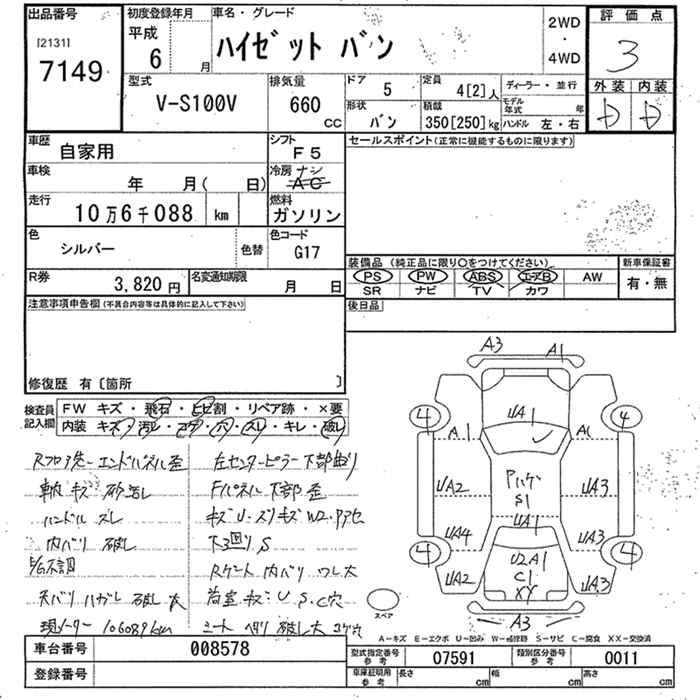 出品番号
[2131]
7149
初度登録年月
平成
6 月
車名・グレード
ハイゼット バン
2WD
・
4WD
評価点
3
外装 内装
D D
型式
V-S100V
排気量
660
CC
ドア
5
定員
4[2]人
ディーラー・並行
形状
バン
積載
350[250]kg
モデル
年式 年
ハンドル 左・右
車歴
自家用
シフト
F5
車検
年 月( 日)
冷房 ナシ
AC
走行
10万6千088 km
燃料
ガソリン
色
シルバー
色替
色コード
G17
R券
3,820 円
名変通知期限
月 日
セールスポイント(正常に機能するものに限ります)
装備品 (純正品に限り○をつけてください)
PS PW ABS エアB AW
SR ナビ TV カワ
新車保証書
有・無
後日品
注意事項申告欄(不具合内容等は具体的に記入して下さい)
修復歴 有〔箇所 〕
検査員
記入欄
FW キズ・飛石・ヒビ割・リペア跡・×要
内装 キズ・汚レ・コゲ・穴・スレ・キレ・破レ
ハンドル スレ
内バリ 破レ
天バリ ハガレ 破レ大
現メーター 106089km
左センターピラー 下部曲り
Fパネル 下部 歪
下回り S
荷室 キズ U S.C穴
A3 A1
4 4
UA1
A1 A1
Pハゲ
S1
UA2 UA3
UA1
UA4 UA3
4 4
U2A1
C1
XY
UA2 UA3
A3
スペア
A−キズ E−エクボ U−凹み W−補修跡 S−サビ C−腐食 XX−交換済
車台番号
008578
登録番号
型式指定番号
参考
07591
類別区分番号
参考
0011
車庫証明用
参考
長さ cm 幅 cm 高さ cm